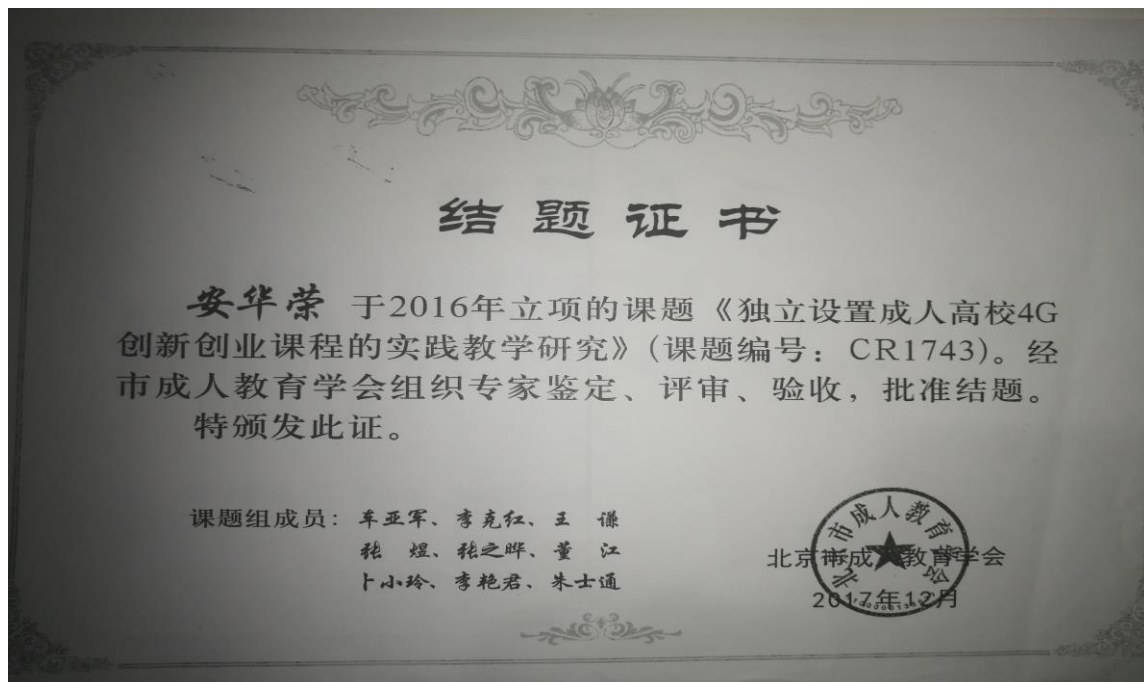 结题证书
安华荣 于2016年立项的课题《独立设置成人高校4G
创新创业课程的实践教学研究》(课题编号：CR1743)。经
市成人教育学会组织专家鉴定、评审、验收，批准结题。
特颁发此证。
课题组成员：车亚军、李克红、王 谦
张 煜、张之晔、董 江
卜小玲、李艳君、朱士通
北京市成人教育学会
北京市成人教育学会
2017年12月